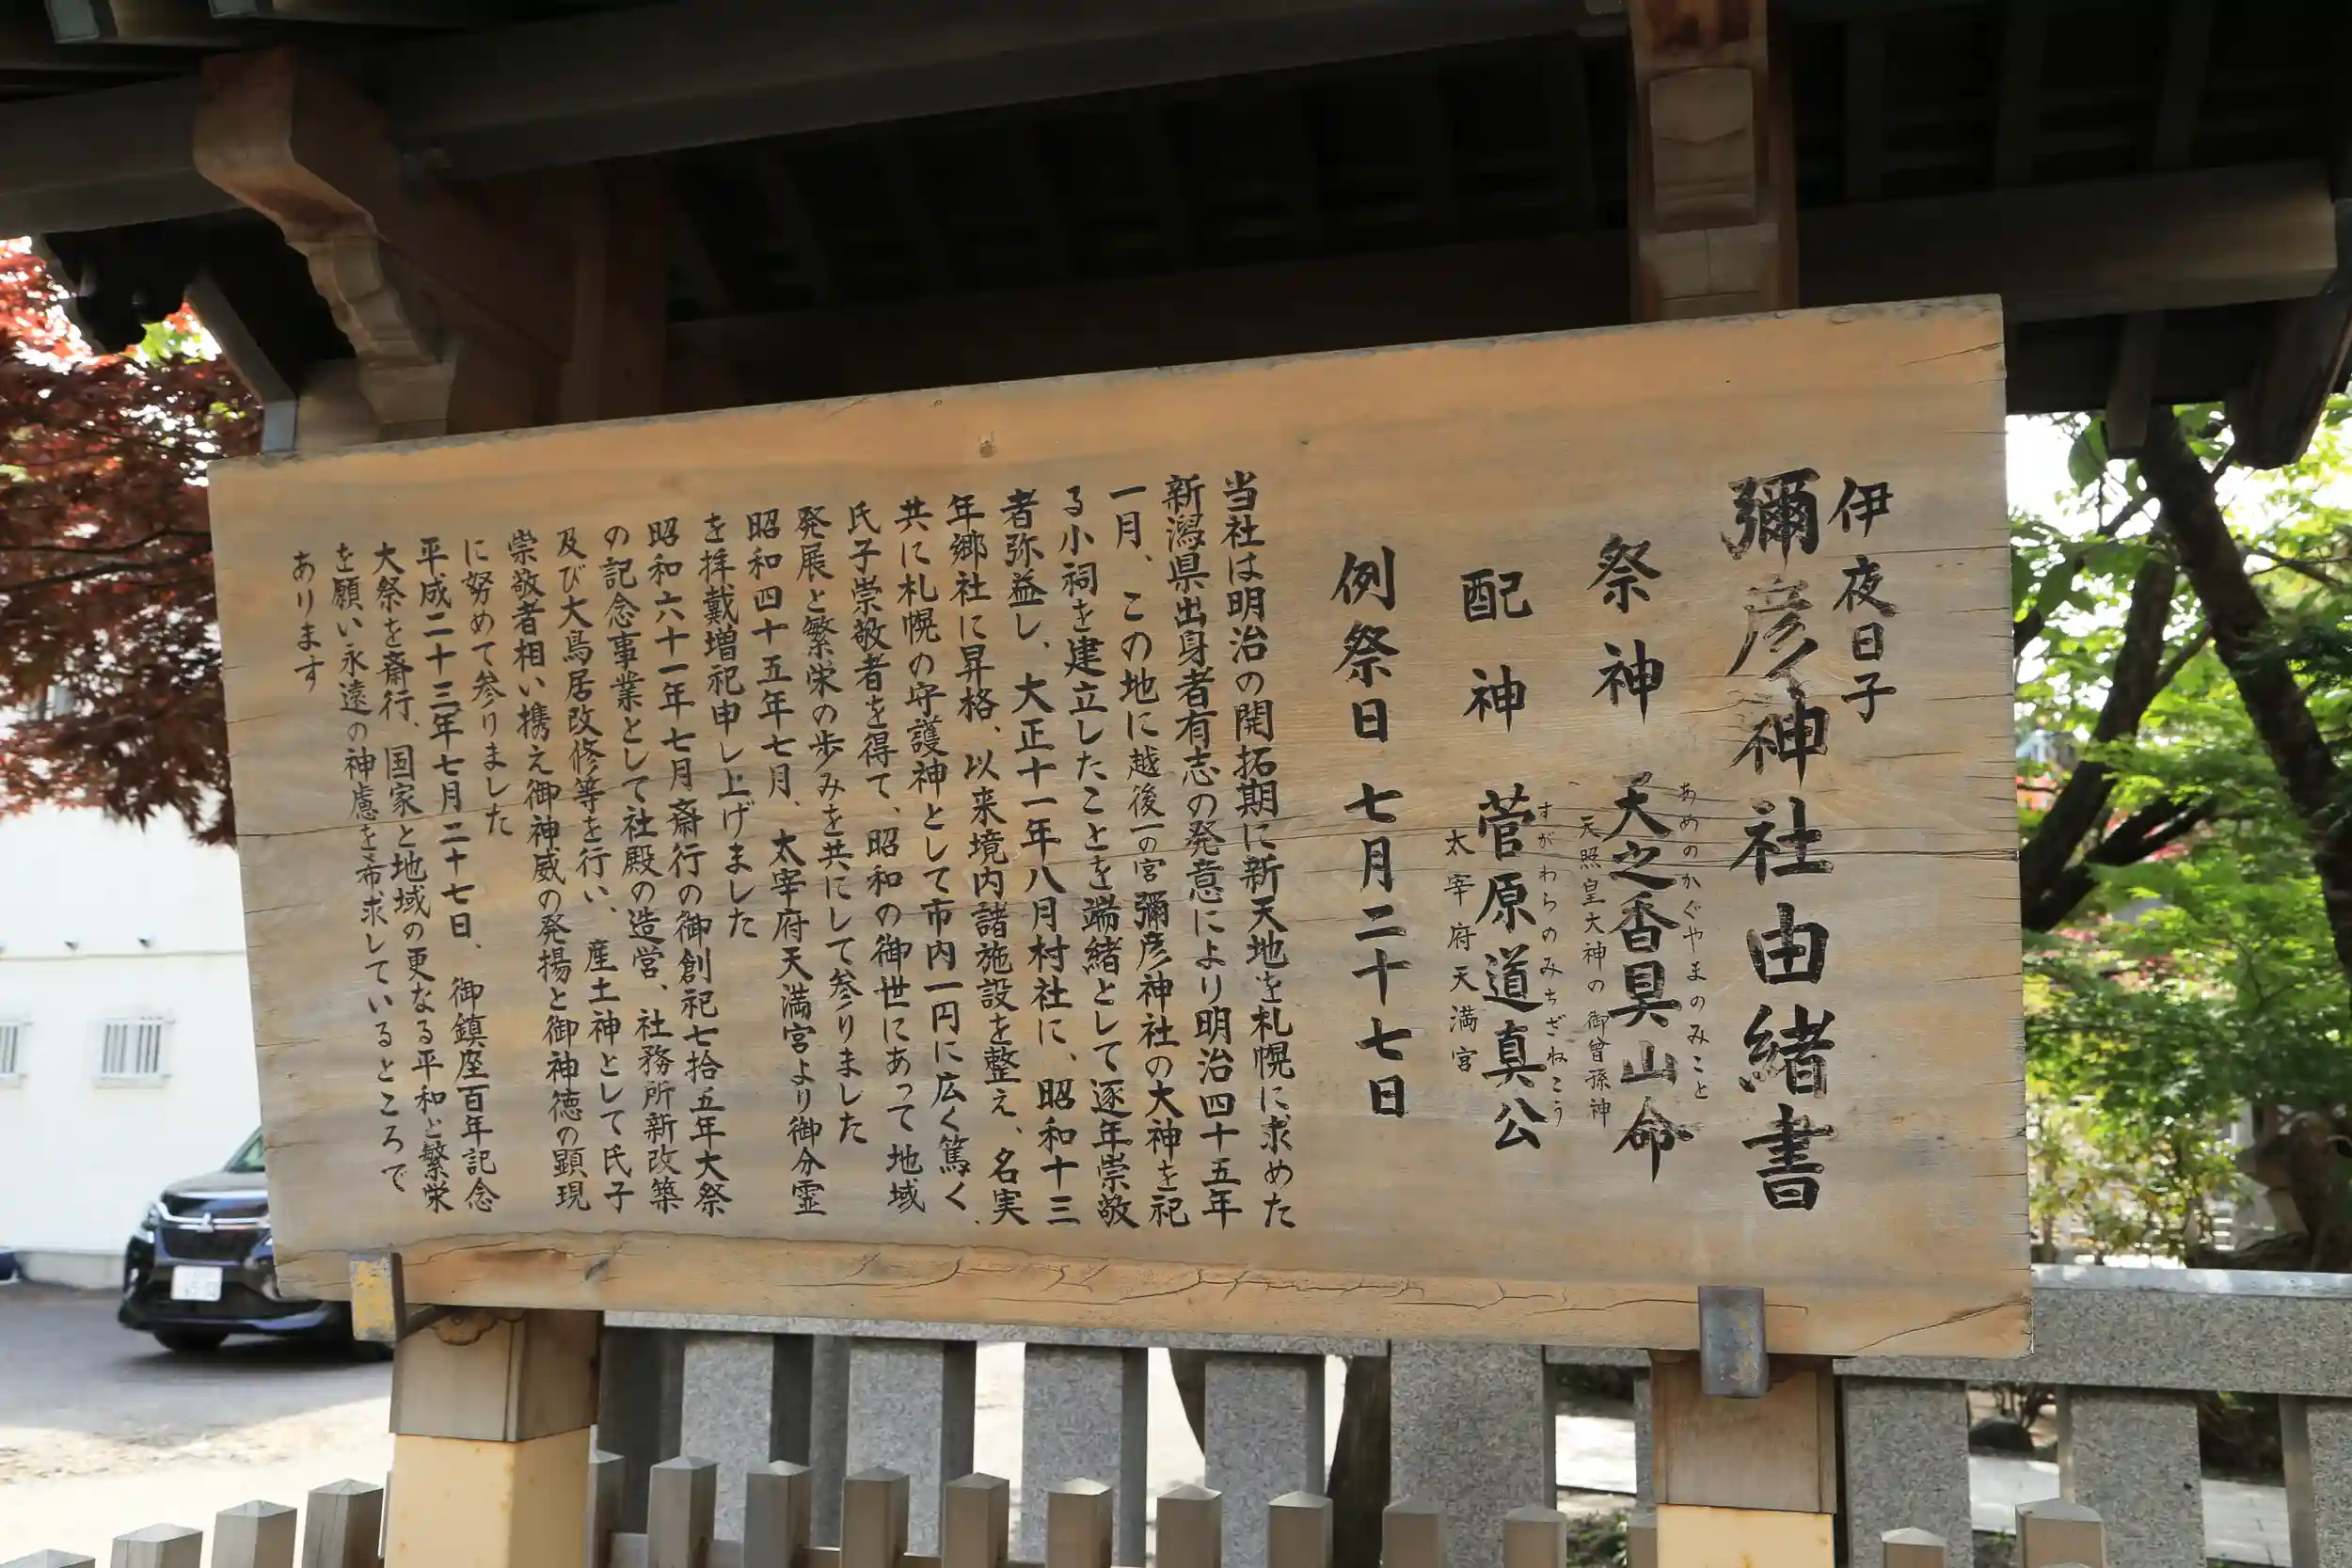 伊夜日子
彌彦神社由緒書
祭神 天之香具山命
あめのかぐやまのみこと
天照皇大神の御曾孫神
配神 菅原道真公
すがわらのみちざねこう
太宰府天満宮
例祭日 七月二十七日
当社は明治の開拓期に新天地を札幌に求めた
新潟県出身者有志の発意により明治四十五年
一月、この地に越後一の宮彌彦神社の大神を祀
る小祠を建立したことを端緒として逐年崇敬
者弥益し、大正十一年八月村社に、昭和十三
年郷社に昇格、以来境内諸施設を整え、名実
共に札幌の守護神として市内一円に広く篤く、
氏子崇敬者を得て、昭和の御世にあって地域
発展と繁栄の歩みを共にして参りました
昭和四十五年七月、太宰府天満宮より御分霊
を拝戴増祀申し上げました
昭和六十一年七月斎行の御創祀七拾五年大祭
の記念事業として社殿の造営、社務所新改築
及び大鳥居改修等を行い、産土神として氏子
崇敬者相い携え御神威の発揚と御神徳の顕現
に努めて参りました
平成二十三年七月二十七日、御鎮座百年記念
大祭を斎行、国家と地域の更なる平和と繁栄
を願い永遠の神慮を希求しているところで
あります